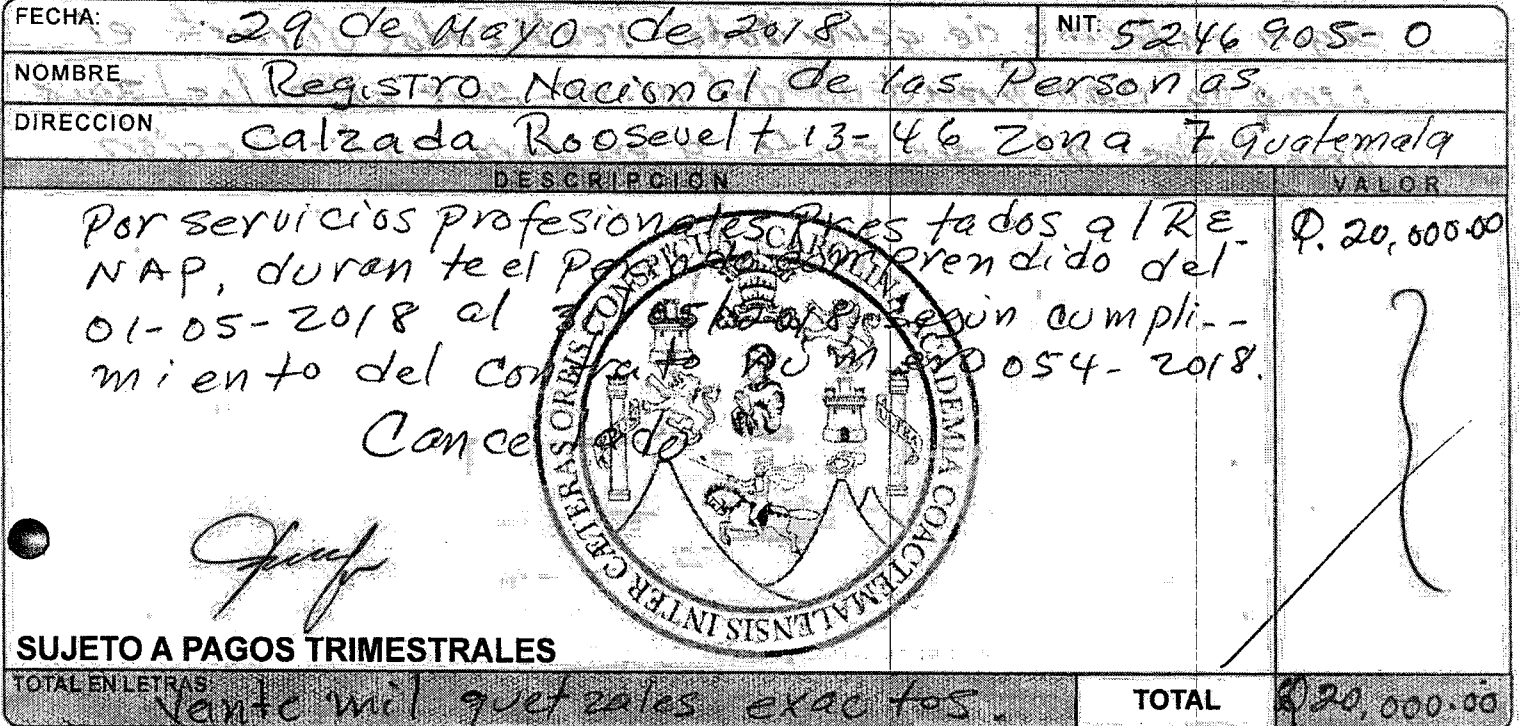 FECHA: 29 de Mayo de 2018 NIT: 5246905-0
NOMBRE Registro Nacional de las Personas.
DIRECCION Calzada Roosevelt 13-46 Zona 7 Guatemala
DESCRIPCION VALOR
Por servicios profesionales Prestados al RE- Q. 20,000.00
NAP, durante el Periodo comprendido del
01-05-2018 al 31/05/2018, según cumpli--
miento del contrato número 054-2018.
Cancelado
CAETERAS ORBIS CONSPICUA CAROLINA ACADEMIA COACTEMALENSIS INTER
SUJETO A PAGOS TRIMESTRALES
TOTAL EN LETRAS: Vente mil quetzales exactos. TOTAL Q20,000.00